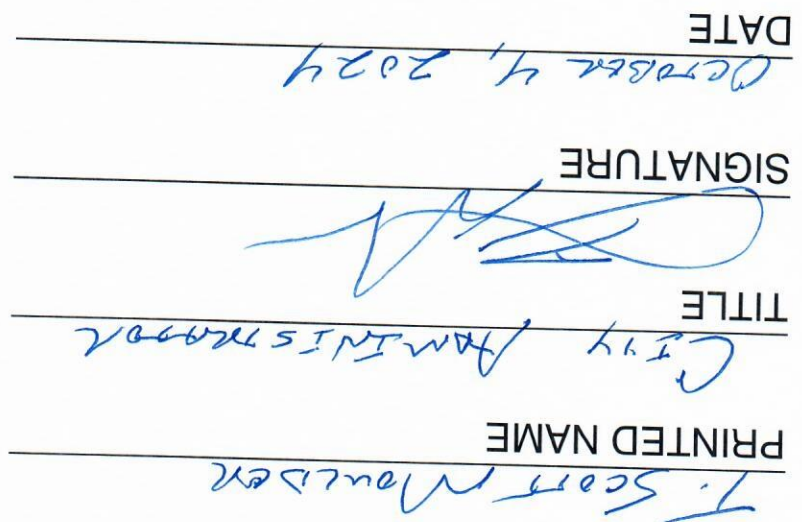 T. SCOTT MOULDER
PRINTED NAME
CITY ADMINISTRATOR
TITLE
SIGNATURE
OCTOBER 4, 2024
DATE